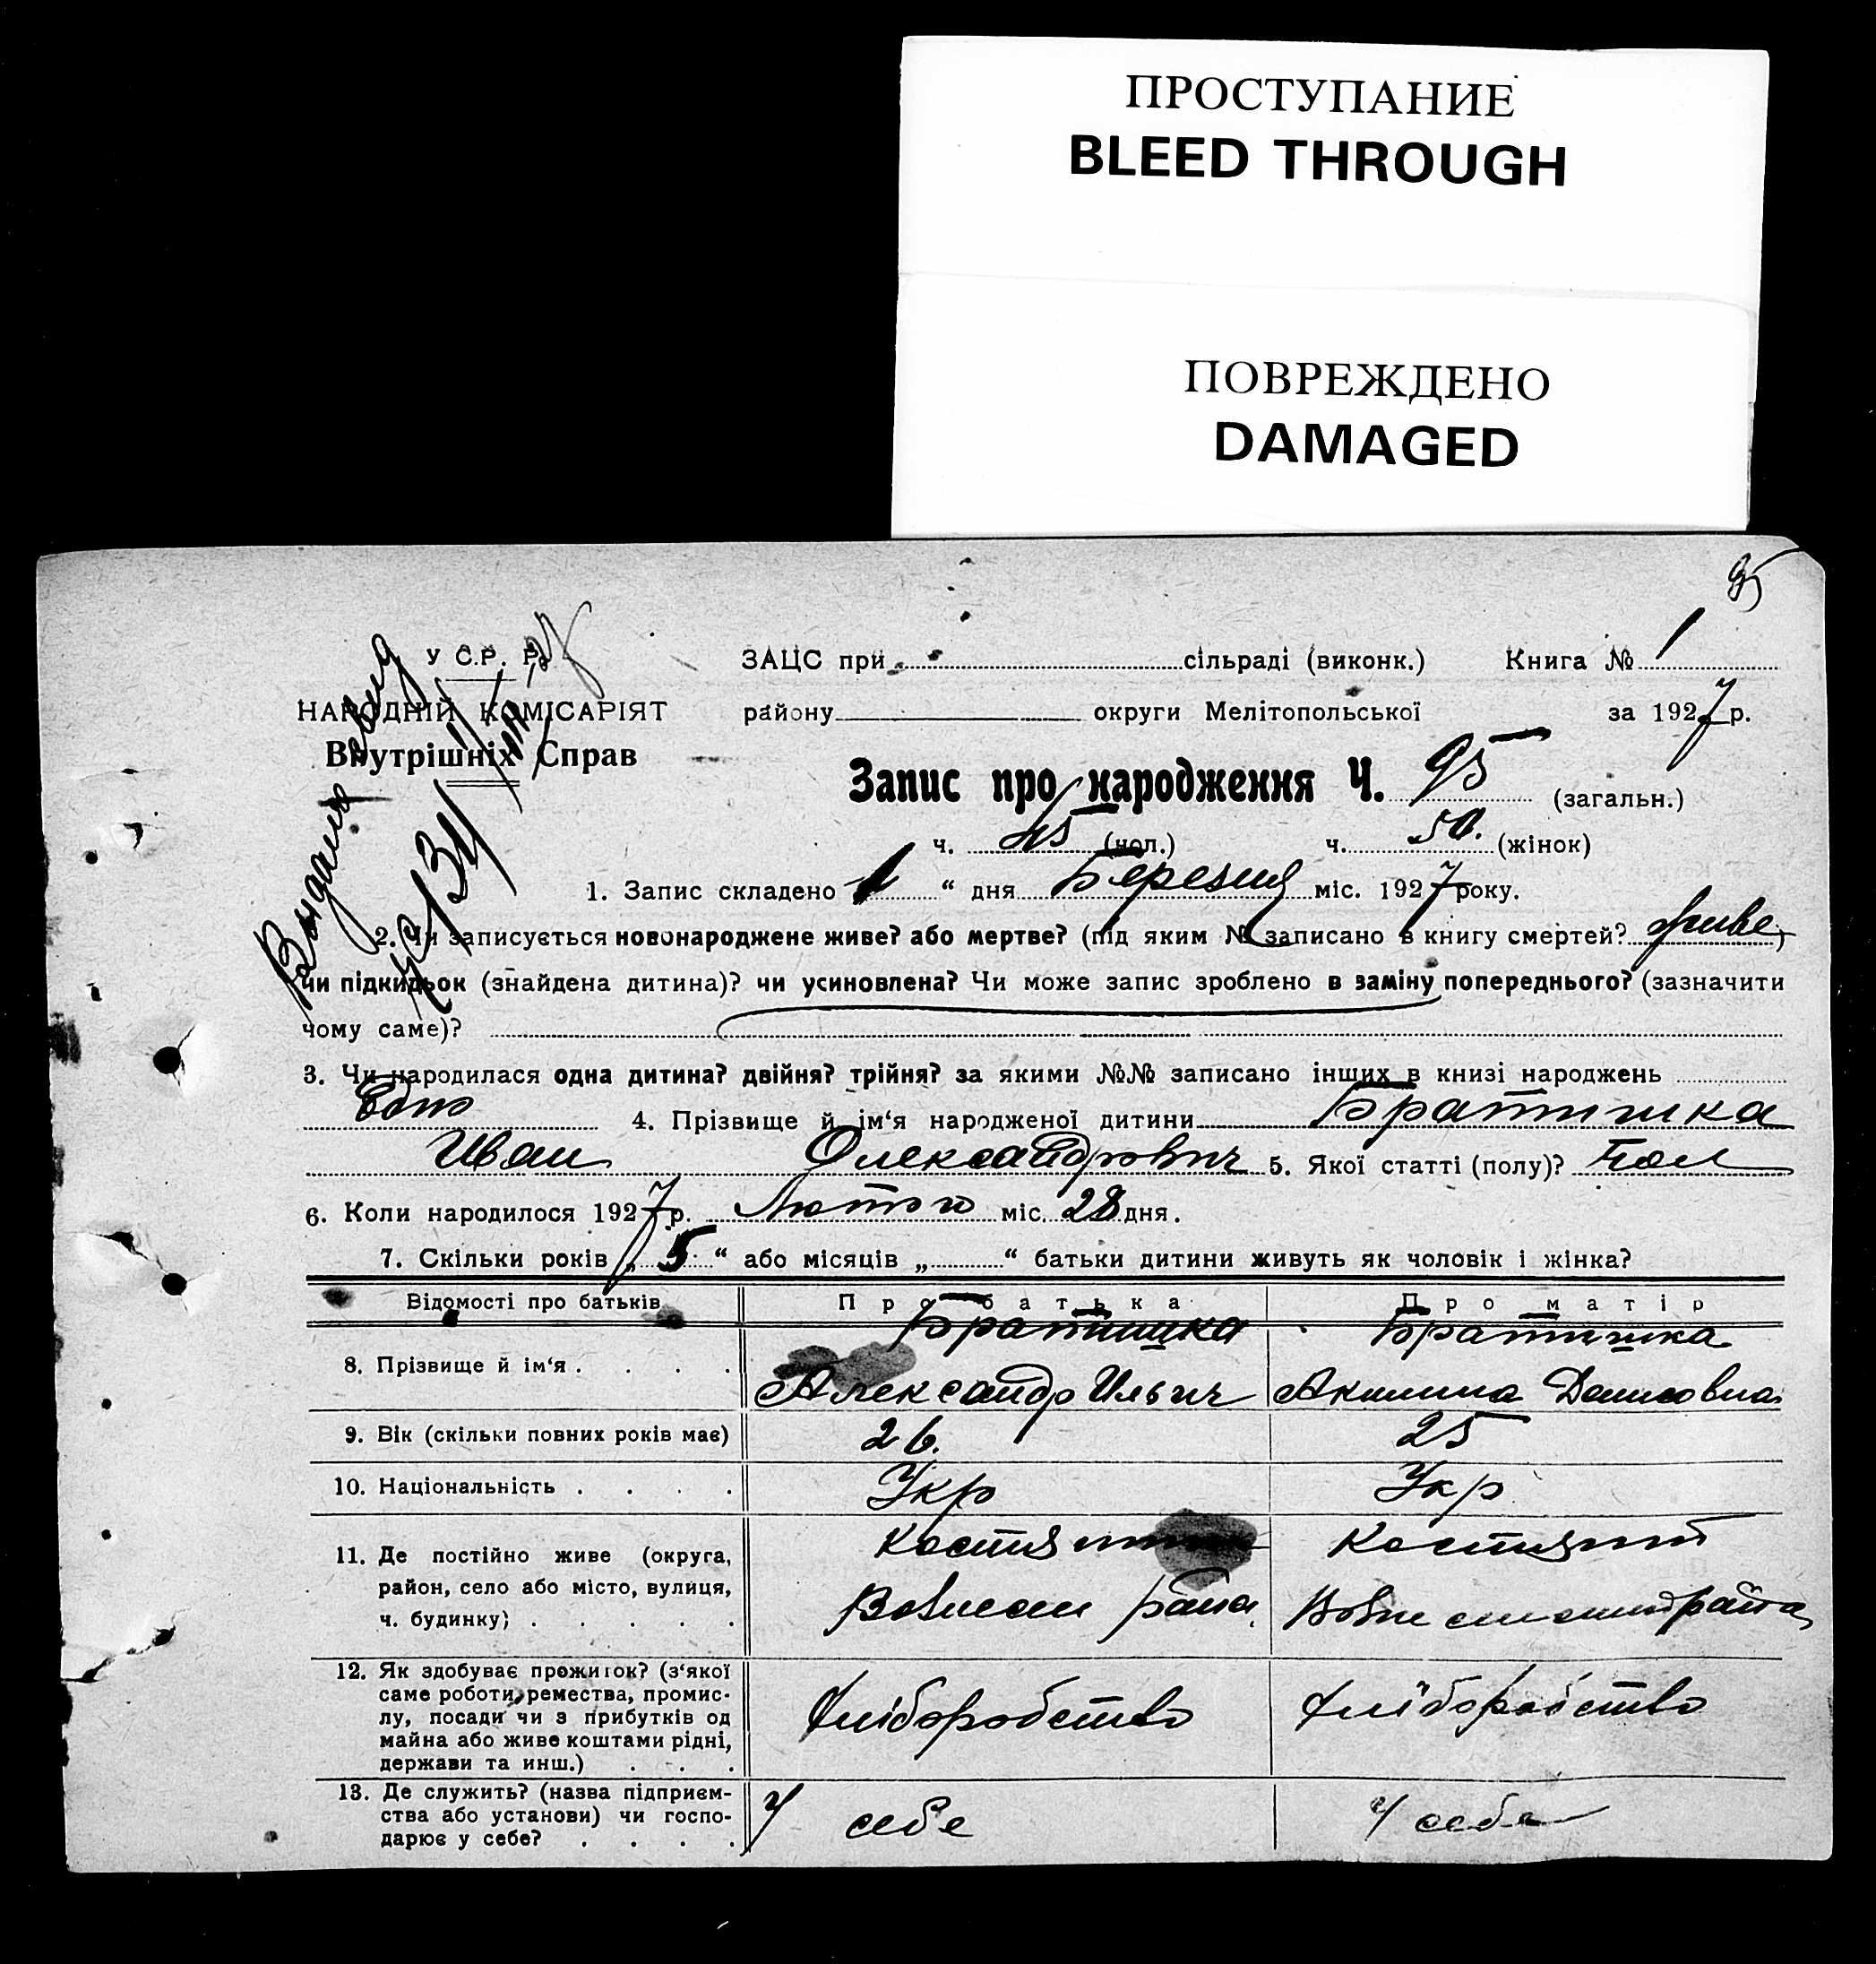 ПРОСТУПАНИЕ
BLEED THROUGH
ПОВРЕЖДЕНО
DAMAGED
95
У С.Р. Р.
ЗАЦС при сільраді (виконк.) Книга № 1
НАРОДНІЙ КОМІСАРІЯТ
району округи Мелітопольської за 1927 р.
Внутрішніх Справ
Запис про народження Ч. 95 (загальн.)
ч. 45 (чол.) ч. 50. (жінок)
1. Запис складено 1 “ дня Березня міс. 1927 року.
2. Чи записується новонароджене живе? або мертве? (під яким № записано в книгу смертей? живе)
чи підкидьок (знайдена дитина)? чи усиновлена? Чи може запис зроблено в заміну попереднього? (зазначити
чому саме)?
3. Чи народилася одна дитина? двійня? трійня? за якими №№ записано інших в книзі народжень
Одно 4. Прізвище й ім‘я народженої дитини Братишка
Иван Олександрович 5. Якої статті (полу)? Чол
6. Коли народилося 1927 р. Лютого міс. 28 дня.
7. Скільки років „ 5 “ або місяців „ “ батьки дитини живуть як чоловік і жінка?
Відомості про батьків Про батька Про матір
Братишка Братишка
8. Прізвище й ім‘я . . . .
Александр Ильич Акилина Денисовна
9. Вік (скільки повних років має) 26. 25
10. Національність . . . . Укр Укр
11. Де постійно живе (округа,
район, село або місто, вулиця,
ч. будинку) . . . . .
района
12. Як здобуває прожиток? (з‘якої
саме роботи, ремества, промис-
лу, посади чи з прибутків од
майна або живе коштами рідні,
держави та инш.) . . .
хліборобство хліборобство
13. Де служить? (назва підприєм-
ства або установи) чи госпо-
дарює у себе? . . . .
У себе У себе